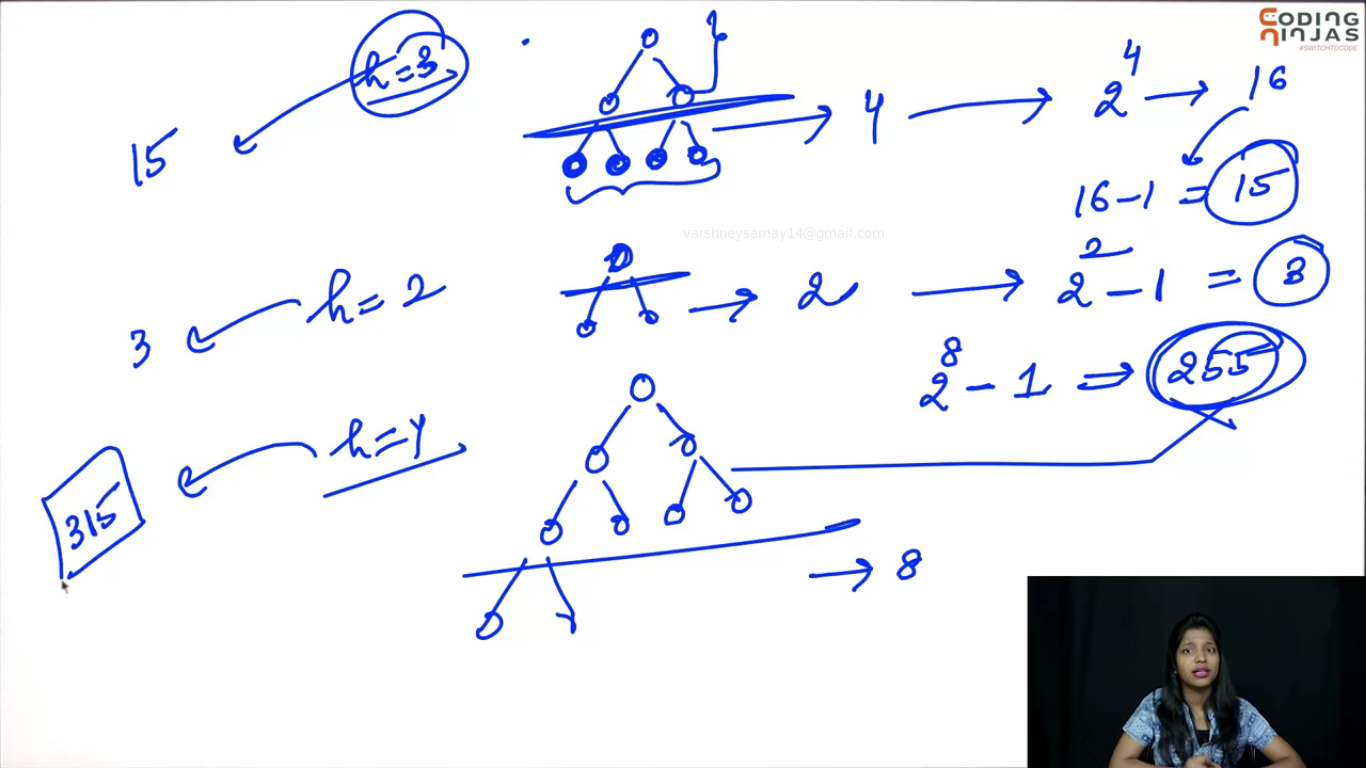 CODING NINJAS
#SWITCHTOCODE
h=3
15
4
2^4 → 16
16-1 = 15
varshneysamay14@gmail.com
3
h=2
2
2^2 - 1 = 3
2^8 - 1 ⇒ 255
h=4
315
8